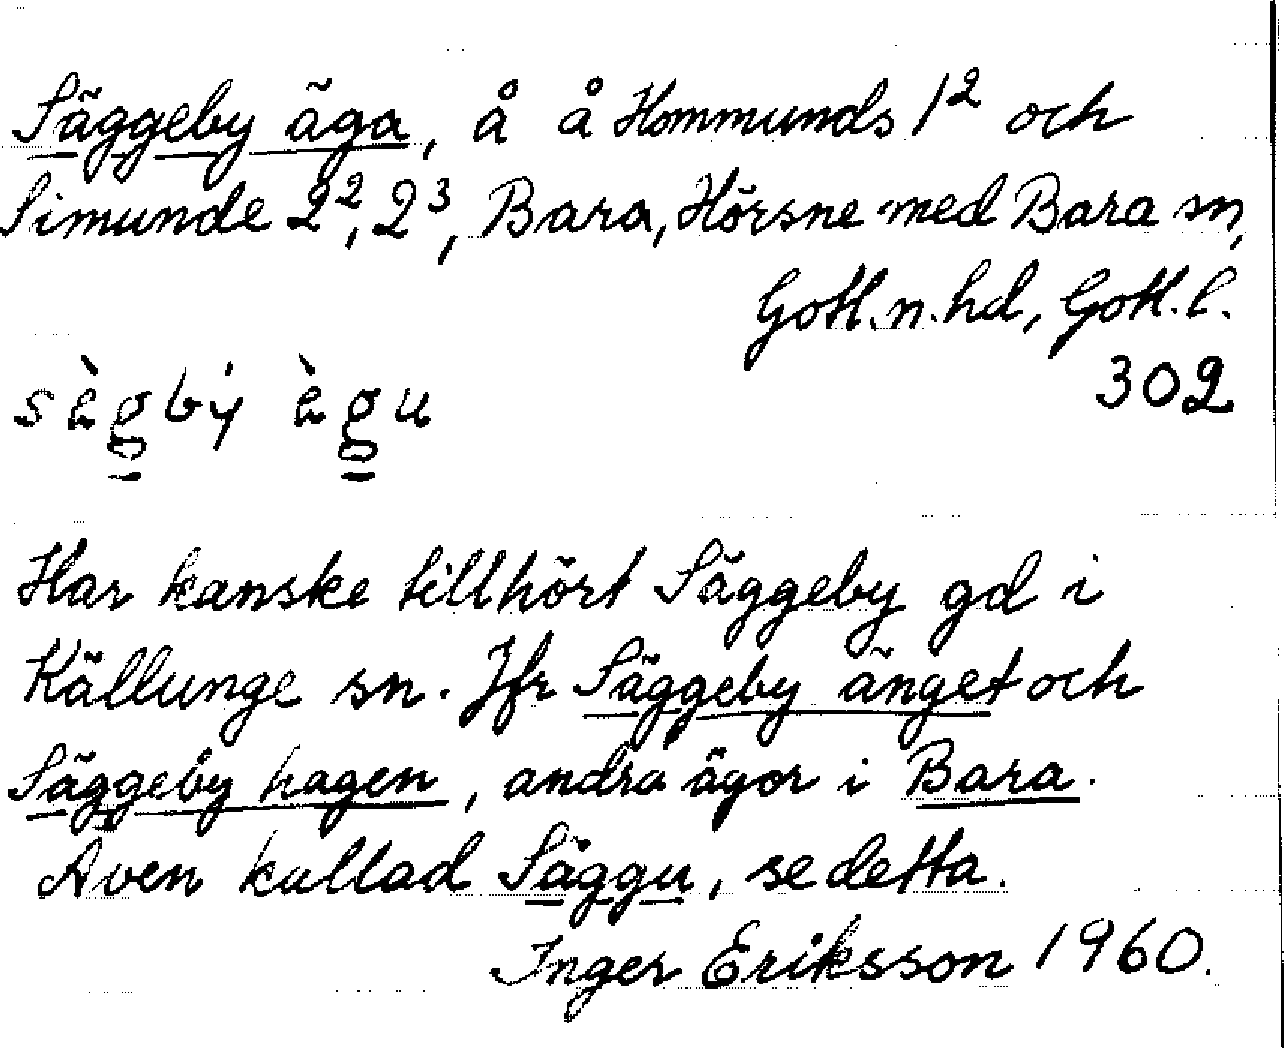 Säggeby äga, å å Hommunds 1² och
Simunde 2², 2³, Bara, Hörsne med Bara sn,
Gotl. n. hd, Gotl. l.
302
sègbý ègu
Har kanske tillhört Säggeby gd i
Källunge sn. Jfr Säggeby änget och
Säggeby hagen, andra ägor i Bara.
Även kallad Säggu, se detta.
Inger Eriksson 1960.